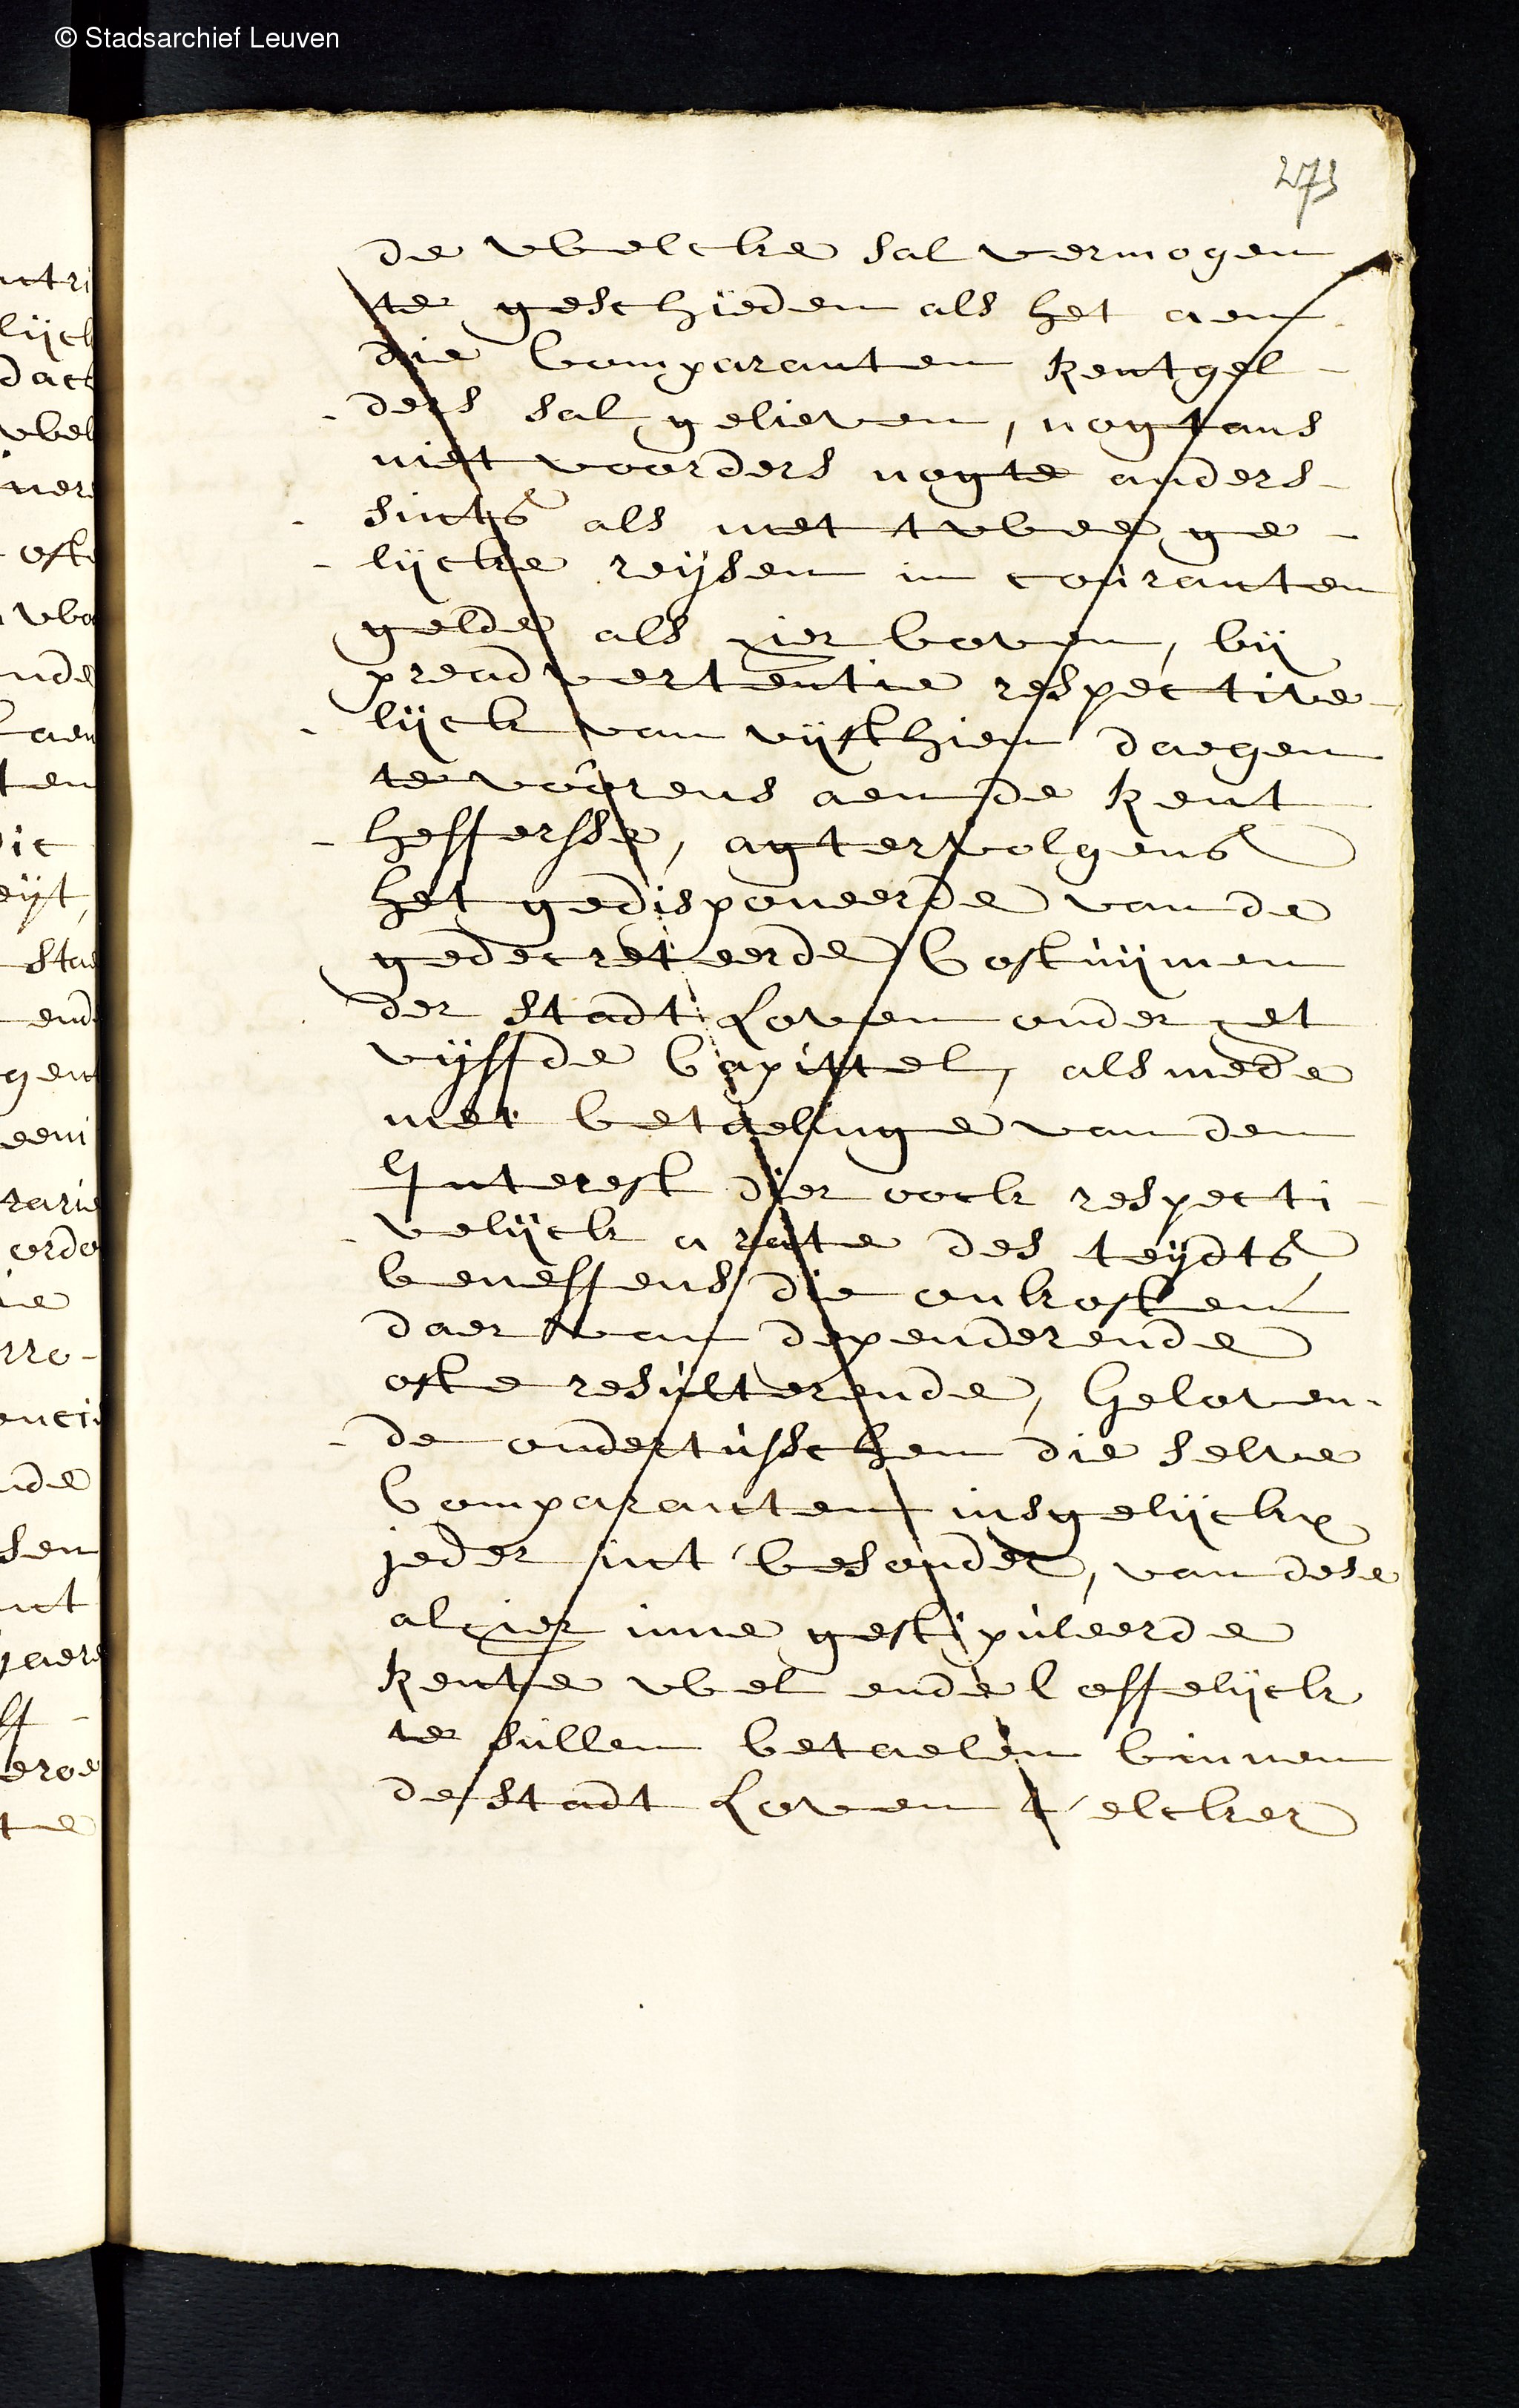 © Stadsarchief Leuven
273
de welcke sal vermogen
te geschieden als het aen
die Comparanten Rentgel-
-ders sal gelieven, nogtans
niet voorders nogte anders-
-sints als met twee ge-
-lijcke reijsen in couranten
gelde als hier boven, bij
preadvertentie respective-
-lijck van vijfthien daegen
te voorens aen de Rent
-heffersse, agtervolgens
het gedisponeerde van de
gedecreteerde Costuijmen
der stadt Loven onder het
vijffde Capittel, als mede
met betaelinge van den
Interest dier oock respecti-
-velijck a rate des teijdts
beneffens die onkosten
daer van dependerende
ofte resulterende, Geloven-
-de ondertusschen die selve
Comparanten insgelijckx
jeder int besonder, van dese
alhier inne gestipuleerde
Rente wel ende loffelijck
te sullen betaelen binnen
de stadt Loven t'elcker